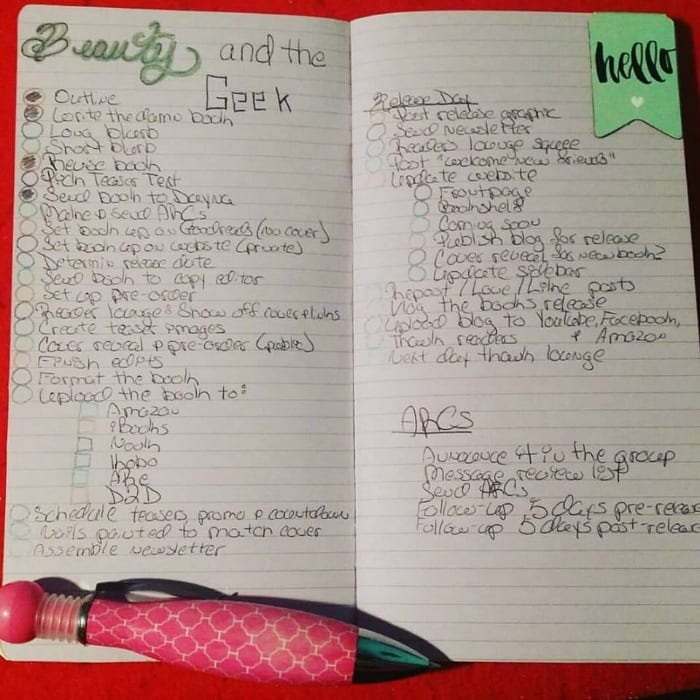 Beauty and the
Geek
Outline
Write the damn book
Long blurb
Short blurb
Revise book
Pick Teaser Text
Send book to Dayna
Make & send ARCs
Set book up on Goodreads (no cover)
Set book up on website (private)
Determin release date
Send book to copy editor
Set up pre-order
Reader lounge: Show off cover &
Create teaser images
Cover reveal & pre-order (public)
Finish edits
Format the book
Upload the book to:
Amazon
iBooks
Nook
Kobo
ARe
D2D
Schedule teasers, promo & countdown
Nails painted to match cover
Assemble newsletter
hello
Release Day
Post release graphic
Send Newsletter
Readers lounge squee
Post "welcome new friends"
Update website
Frontpage
Bookshelf
Coming soon
Publish blog for release
Cover reveal for new book?
Update sidebar
Repost/Love/Like posts
Vlog the books release
Upload blog to YouTube, Facebook,
& Amazon
Thank readers
Next day thank lounge
ARCs
Announce it in the group
Message review list
Send ARCs
Follow-up 5 days pre-release
Follow-up 5 days post-release